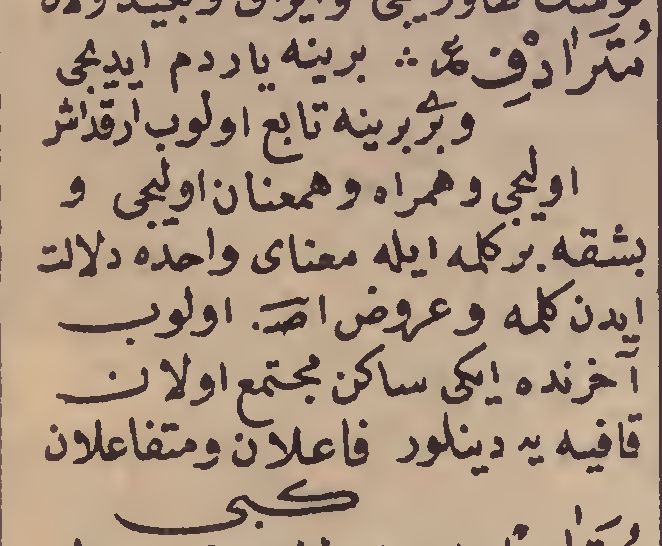 مُتَرَادِفْ عر ∴ برينه ياردم ايديجى
و بربرينه تابع اولوب ارقداش
اوليجى و همراه و همعنان اوليجى و
بشقه بر كلمه ايله معناى واحده دلالت
ايدن كلمه و عروض اصـ. اولوب
آخرنده ايكى ساكن مجتمع اولان
قافيه يه دينلور فاعلان ومتفاعلان
كبى